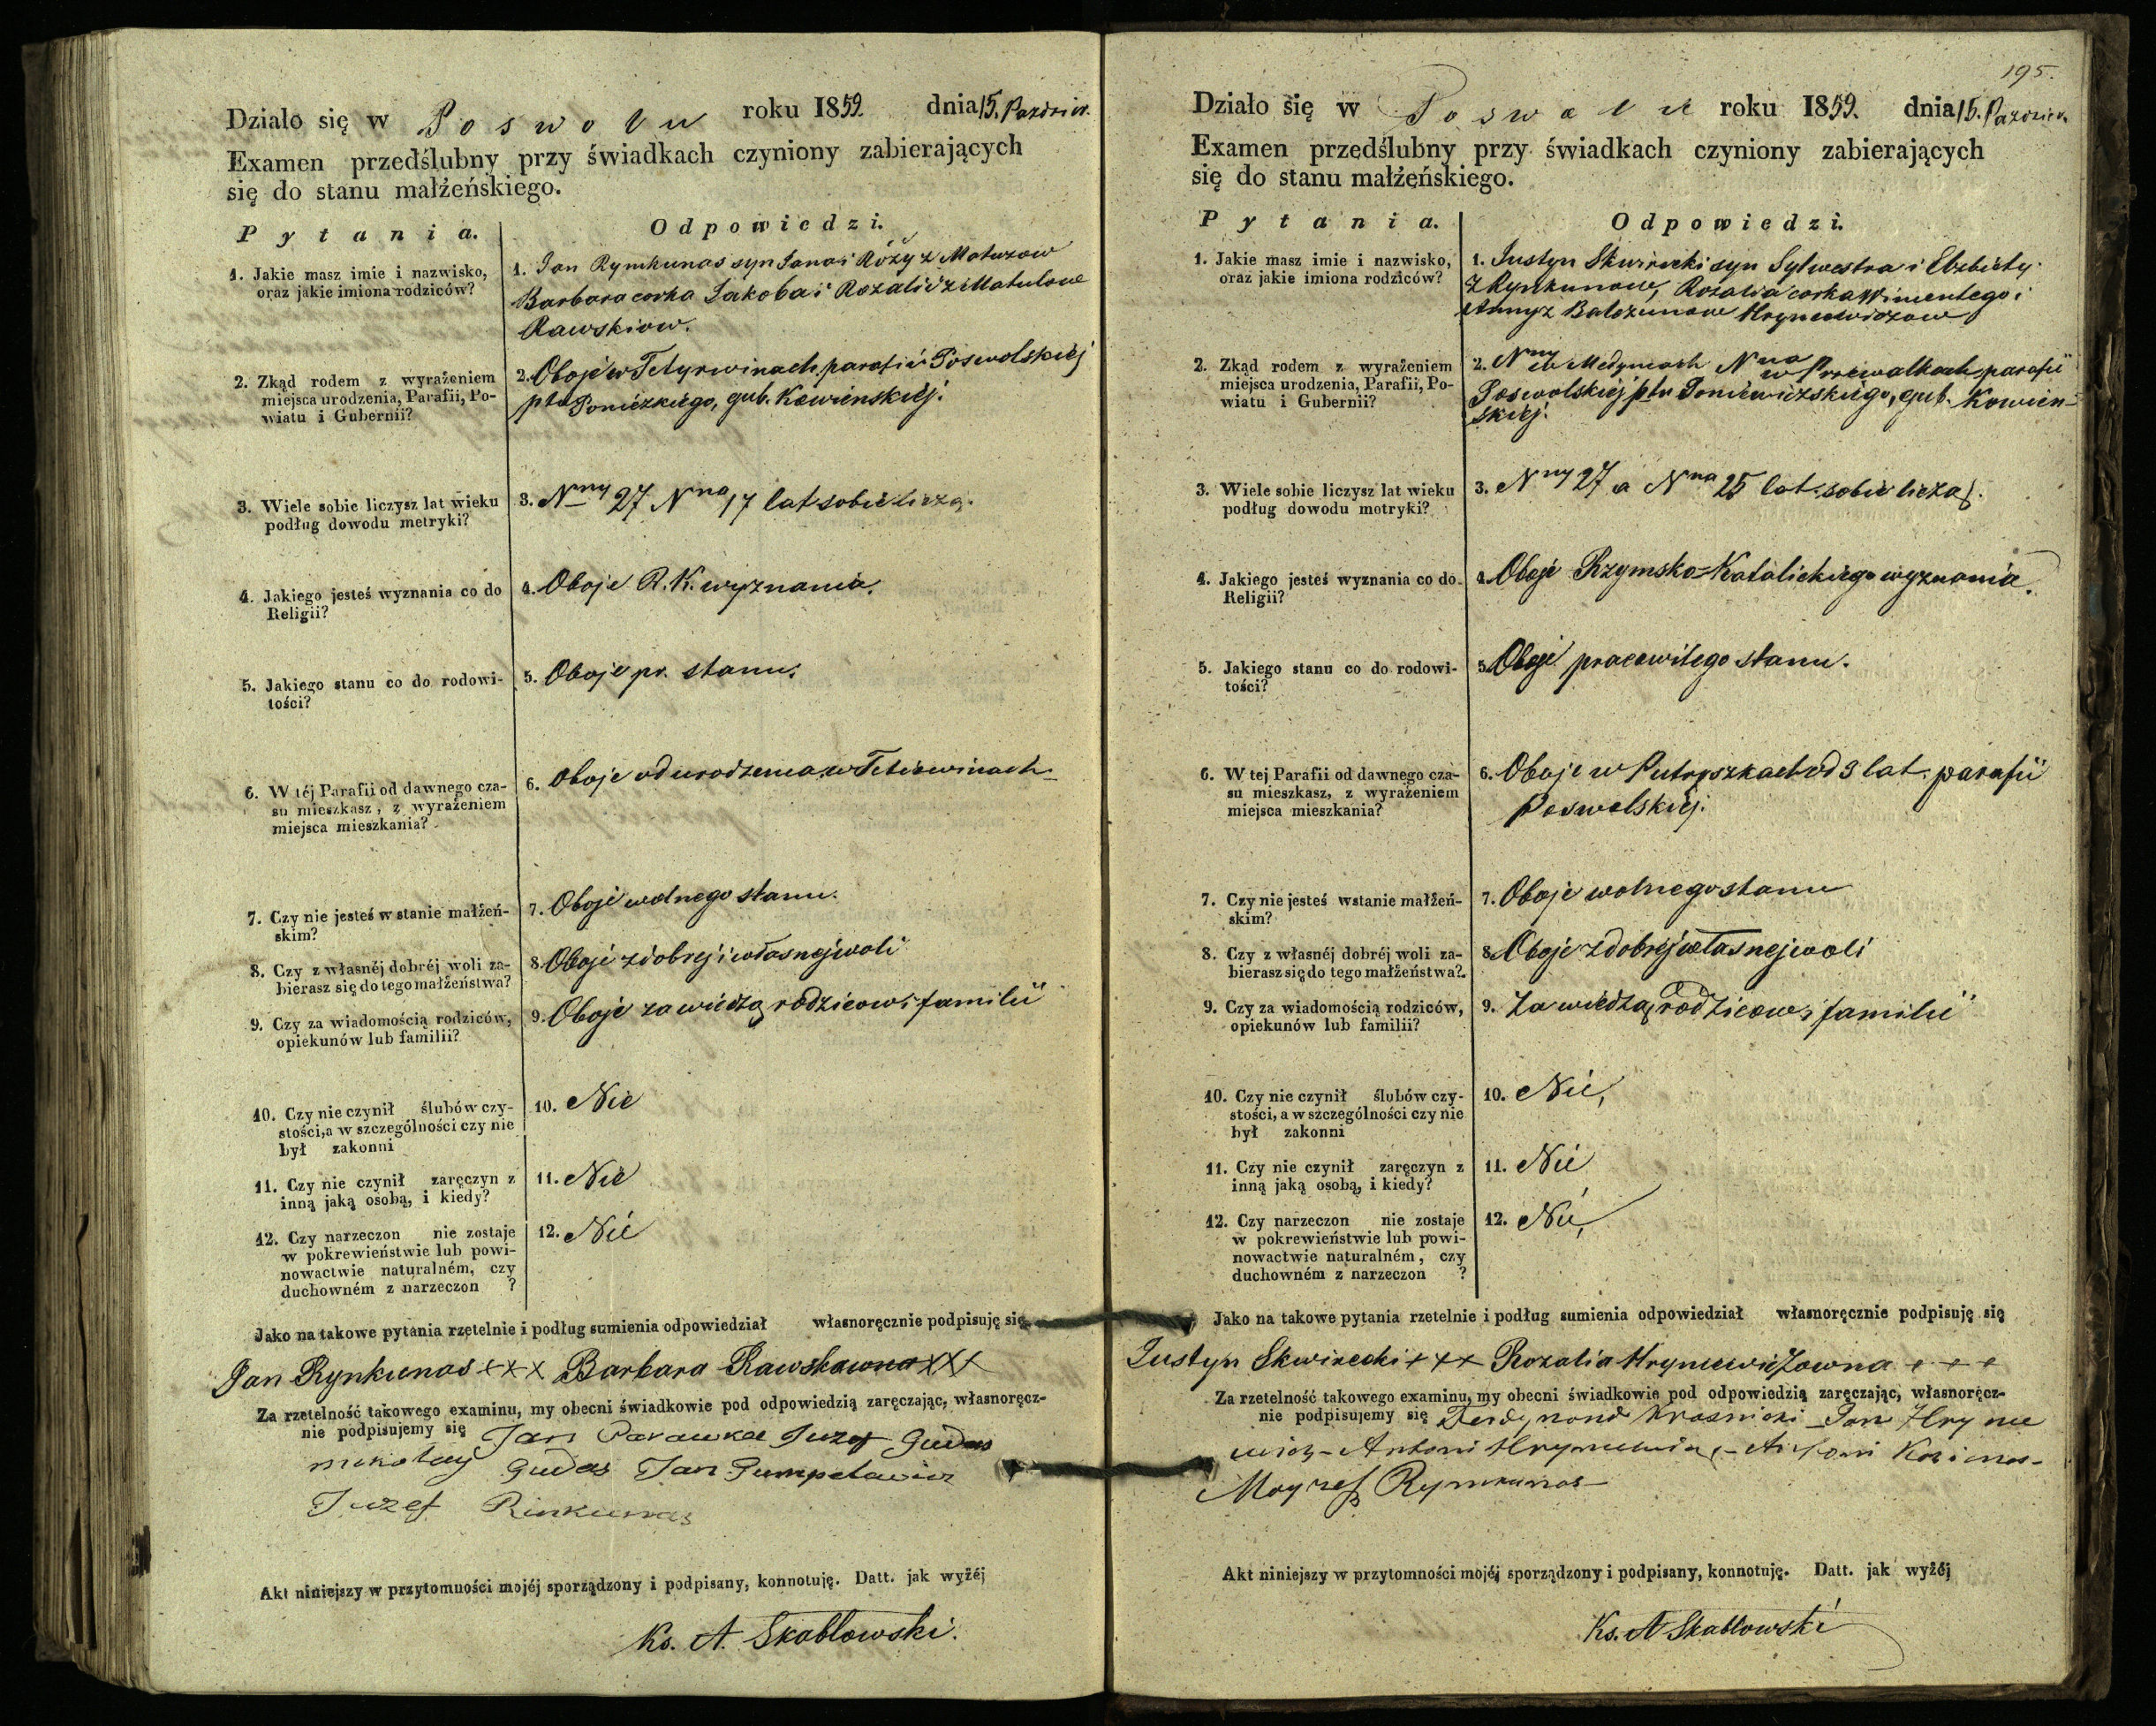 Działo się w Poswolu roku 1859. dnia 15. Paździer.
Examen przedślubny przy świadkach czyniony zabierających
się do stanu małżeńskiego.
Pytania. Odpowiedzi.
1. Jakie masz imie i nazwisko,
oraz jakie imiona rodziców?
1. Jan Rymkunas syn Jana i Róży z
Barbara corka Jakoba i Rozalii z
Rawskiow.
2. Zkąd rodem z wyrażeniem
miejsca urodzenia, Parafii, Po-
wiatu i Gubernii?
2. Oboje w Tetyrwinach parafii Poswolskiej
ptu gub. Kowienskiej.
3. Wiele sobie liczysz lat wieku
podług dowodu metryki?
3. Nny 27 Nna 17 lat sobie liczą.
4. Jakiego jesteś wyznania co do
Religii?
4. Oboje R. K. wyznania.
5. Jakiego stanu co do rodowi-
tości?
5. Oboje pr. stanu.
6. W téj Parafii od dawnego cza-
su mieszkasz, z wyrażeniem
miejsca mieszkania?
6. Oboje od urodzenia w
7. Czy nie jesteś w stanie małżeń-
skim?
7. Oboje wolnego stanu.
8. Czy z własnéj dobréj woli za-
bierasz się do tego małżeństwa?
8. Oboje z dobrej i własnej woli
9. Czy za wiadomością rodziców,
opiekunów lub familii?
9. Oboje za wiedzą rodzicow i familii
10. Czy nie czynił ślubów czy-
stości, a w szczególności czy nie
był zakonni
10. Nie
11. Czy nie czynił zaręczyn z
inną jaką osobą, i kiedy?
11. Nie
12. Czy narzeczon nie zostaje
w pokrewieństwie lub powi-
nowactwie naturalném, czy
duchowném z narzeczon ?
12. Nie
Jako na takowe pytania rzetelnie i podług sumienia odpowiedział własnoręcznie podpisuję się
Jan Rynkunas +++ Barbara Rawskawna +++
Za rzetelność takowego examinu, my obecni świadkowie pod odpowiedzią zaręczając, własnoręcz-
nie podpisujemy się Jan Juzef Gudas
mikolay Gudas Jan
Juzef Rinkunas
Akt niniejszy w przytomności mojéj sporządzony i podpisany, konnotuję. Datt. jak wyżéj
Ks. A. Skabłowski.
195.
Działo się w Poswolu roku 1859. dnia 15. Paździer.
Examen przedślubny przy świadkach czyniony zabierających
się do stanu małżeńskiego.
Pytania. Odpowiedzi.
1. Jakie masz imie i nazwisko,
oraz jakie imiona rodziców?
1. Justyn Skwirecki syn Sylwestra i Elzbiety
z Rynkunow, Rozalia corka Wincentego i
Anny z Balczunow Hryncewiczow
2. Zkąd rodem z wyrażeniem
miejsca urodzenia, Parafii, Po-
wiatu i Gubernii?
2. Nny w Nna w parafii
Poswolskiej ptu Poniewiezskiego, gub. Kowien-
skiej.
3. Wiele sobie liczysz lat wieku
podług dowodu metryki?
3. Nny 27 a Nna 25 lat sobie liczą.
4. Jakiego jesteś wyznania co do
Religii?
4. Oboje Rzymsko-Katolickiego wyznania.
5. Jakiego stanu co do rodowi-
tości?
5. Oboje pracowitego stanu.
6. W tej Parafii od dawnego cza-
su mieszkasz, z wyrażeniem
miejsca mieszkania?
6. Oboje w od 3 lat. parafii
Poswolskiej.
7. Czy nie jesteś wstanie małżeń-
skim?
7. Oboje wolnego stanu
8. Czy z własnéj dobréj woli za-
bierasz się do tego małżeństwa?
8. Oboje z dobrej własnej woli
9. Czy za wiadomością rodziców,
opiekunów lub familii?
9. Za wiedzą rodzicow i familii
10. Czy nie czynił ślubów czy-
stości, a w szczególności czy nie
był zakonni
10. Nie,
11. Czy nie czynił zaręczyn z
inną jaką osobą, i kiedy?
11. Nie
12. Czy narzeczon nie zostaje
w pokrewieństwie lub powi-
nowactwie naturalném, czy
duchowném z narzeczon ?
12. Nie,
Jako na takowe pytania rzetelnie i podług sumienia odpowiedział własnoręcznie podpisuję się
Justyn Skwirecki +++ Rozalia Hryncewiczowna +++
Za rzetelność takowego examinu, my obecni świadkowie pod odpowiedzią zaręczając, własnoręcz-
nie podpisujemy się Ferdynand Krasnicki - Jan Hrynce
wicz - Antoni Hryncewicz - Antoni
Rymkunas -
Akt niniejszy w przytomności mojéj sporządzony i podpisany, konnotuję. Datt. jak wyżéj
Ks. A Skabłowski